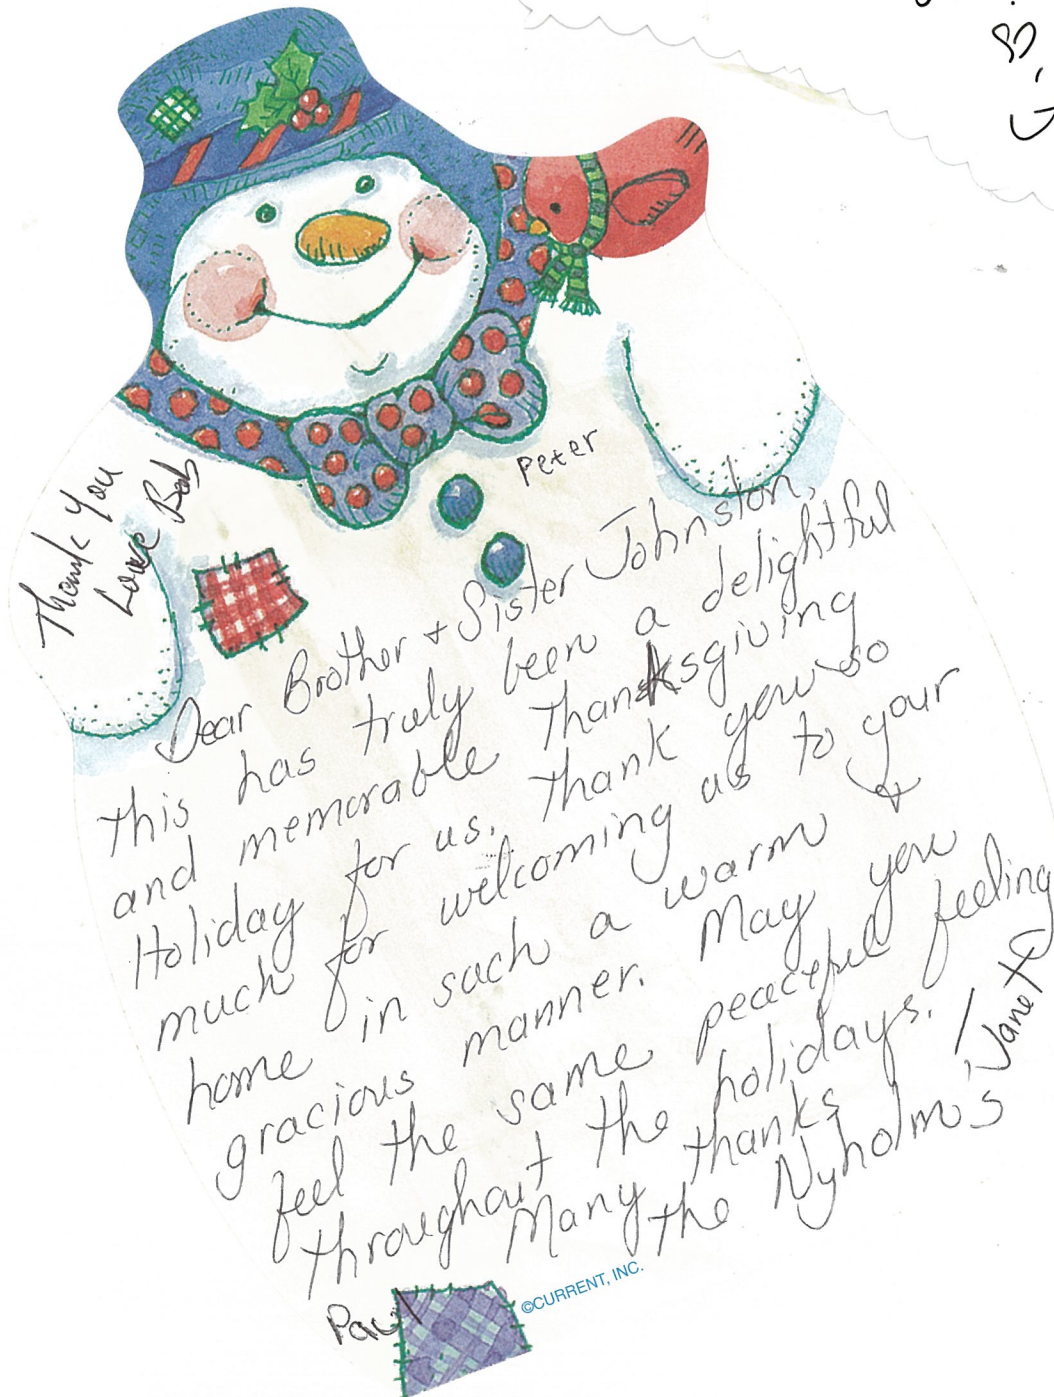 Peter
Thank You
Love Bob
Dear Brother + Sister Johnston,
this has truly been a delightful
and memorable Thanksgiving
Holiday for us. Thank you so
much for welcoming us to your
home in such a warm +
gracious manner. May you
feel the same peaceful feeling
throughout the holidays.
Many thanks
the Nyholm's
Janet
Paul
©CURRENT, INC.